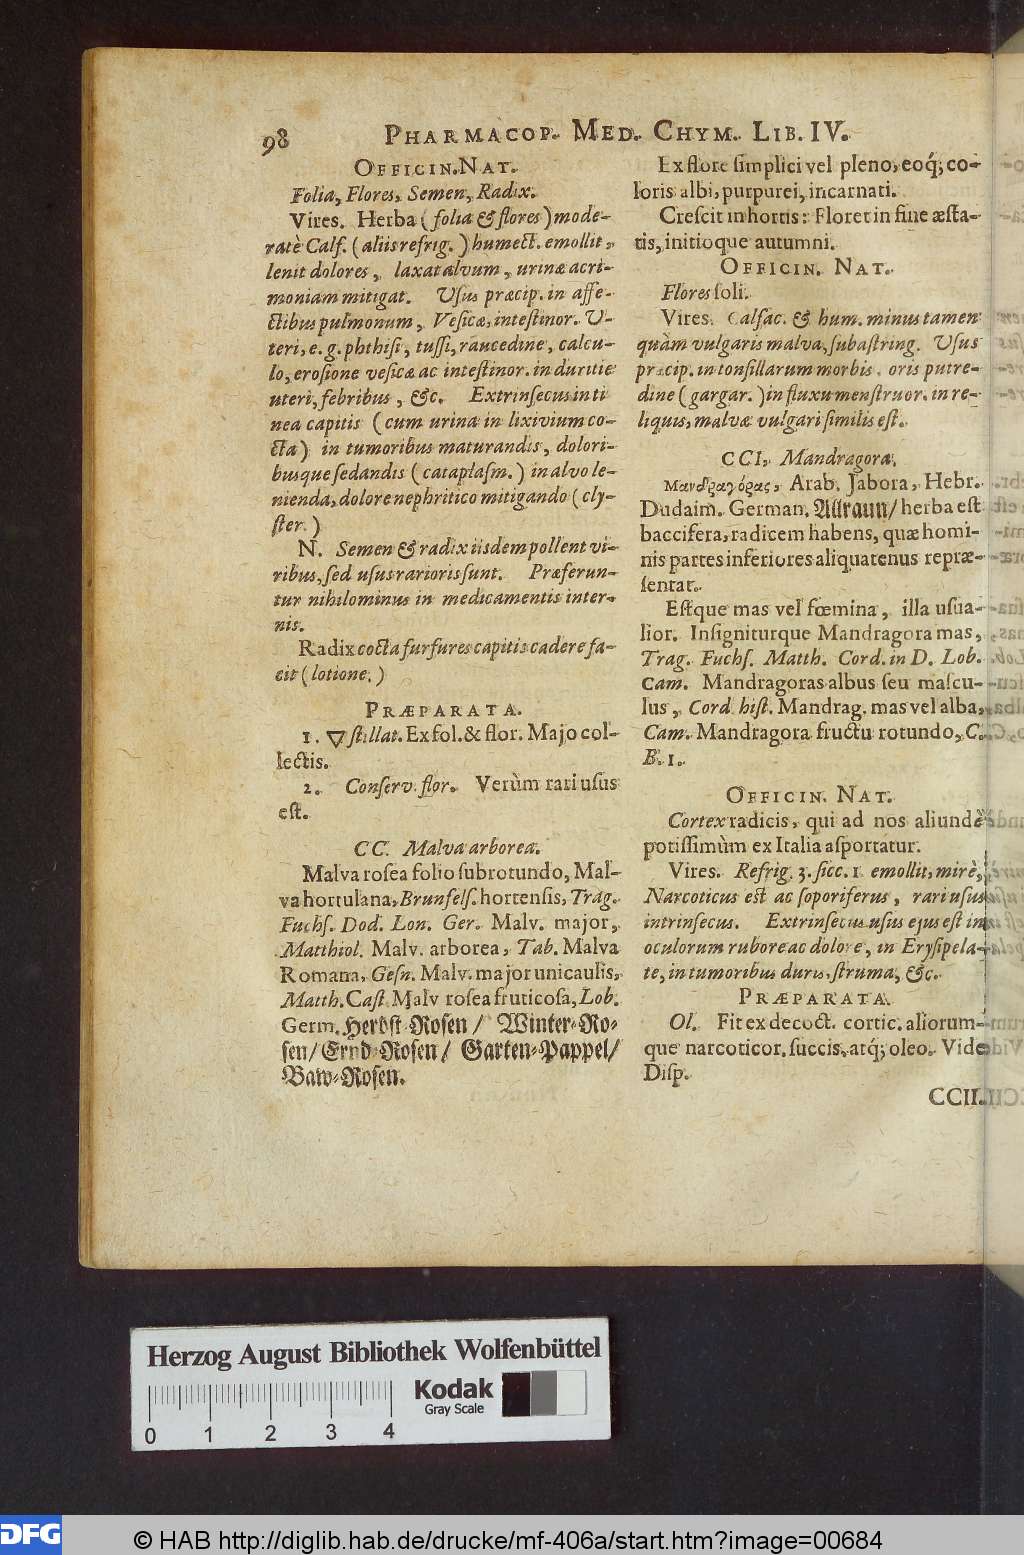 98 PHARMACOP. MED. CHYM. LIB. IV.
OFFICIN. NAT.
Folia, Flores, Semen, Radix.
Vires. Herba (folia & flores) mode-
ratè Calf. (aliis refrig.) humect. emollit,
lenit dolores, laxat alvum, urinæ acri-
moniam mitigat. Uſus præcip. in affe-
ctibus pulmonum, Veſicæ, inteſtinor. U-
teri, e. g. phthiſi, tuſſi, raucedine, calcu-
lo, eroſione veſicæ ac inteſtinor. in duritie
uteri, febribus, &c. Extrinſecus in ti
nea capitis (cum urina in lixivium co-
cta) in tumoribus maturandis, dolori-
busque ſedandis (cataplaſm.) in alvo le-
nienda, dolore nephritico mitigando (cly-
ſter.)
N. Semen & radix iisdem pollent vi-
ribus, ſed uſus rarioris ſunt. Præferun-
tur nihilominus in medicamentis inter-
nis.
Radix cocta furfures capitis cadere fa-
cit (lotione.)
PRÆPARATA.
1. ▽ ſtillat. Ex fol. & flor. Majo col-
lectis.
2. Conſerv. flor. Verùm rari uſus
eſt.
CC. Malva arborea.
Malva roſea folio ſubrotundo, Mal-
va hortulana, Brunfelſ. hortenſis, Trag.
Fuchſ. Dod. Lon. Ger. Malv. major,
Matthiol. Malv. arborea, Tab. Malva
Romana, Geſn. Malv. major unicaulis,
Matth. Caſt. Malv roſea fruticoſa, Lob.
Germ. Herbſt-Roſen / Winter-Ro-
ſen / Ernd-Roſen / Garten-Pappel /
Baw-Roſen.
Ex flore ſimplici vel pleno, eoq́; co-
loris albi, purpurei, incarnati.
Creſcit in hortis: Floret in fine æſta-
tis, initioque autumni.
OFFICIN. NAT.
Flores ſoli.
Vires. Calfac. & hum. minus tamen
quàm vulgaris malva, ſubaſtring. Uſus
præcip. in tonſillarum morbis, oris putre-
dine (gargar.) in fluxu menſtruor. in re-
liquis, malvæ vulgari ſimilis eſt.
CCI. Mandragora.
Μανδραγόρας, Arab. Jabora, Hebr.
Dudaim. German. Allraun / herba eſt
baccifera, radicem habens, quæ homi-
nis partes inferiores aliquatenus repræ-
ſentat.
Eſtque mas vel fœmina, illa uſua-
lior. Inſigniturque Mandragora mas,
Trag. Fuchſ. Matth. Cord. in D. Lob.
Cam. Mandragoras albus ſeu maſcu-
lus, Cord hiſt. Mandrag. mas vel alba,
Cam. Mandragora fructu rotundo, C.
B. 1.
OFFICIN. NAT.
Cortex radicis, qui ad nos aliunde
potiſſimùm ex Italia aſportatur.
Vires. Refrig. 3. ſicc. 1 emollit, mirè,
Narcoticus eſt ac ſoporiferus, rari uſus
intrinſecus. Extrinſecus uſus ejus eſt in
oculorum rubore ac dolore, in Eryſipela-
te, in tumoribus duris, ſtruma, &c.
PRÆPARATA.
Ol. Fit ex decoct. cortic. aliorum-
que narcoticor. ſuccis, atq́; oleo. Vide
Diſp.
CCII.
Herzog August Bibliothek Wolfenbüttel
Kodak
Gray Scale
0 1 2 3 4
DFG
© HAB http://diglib.hab.de/drucke/mf-406a/start.htm?image=00684